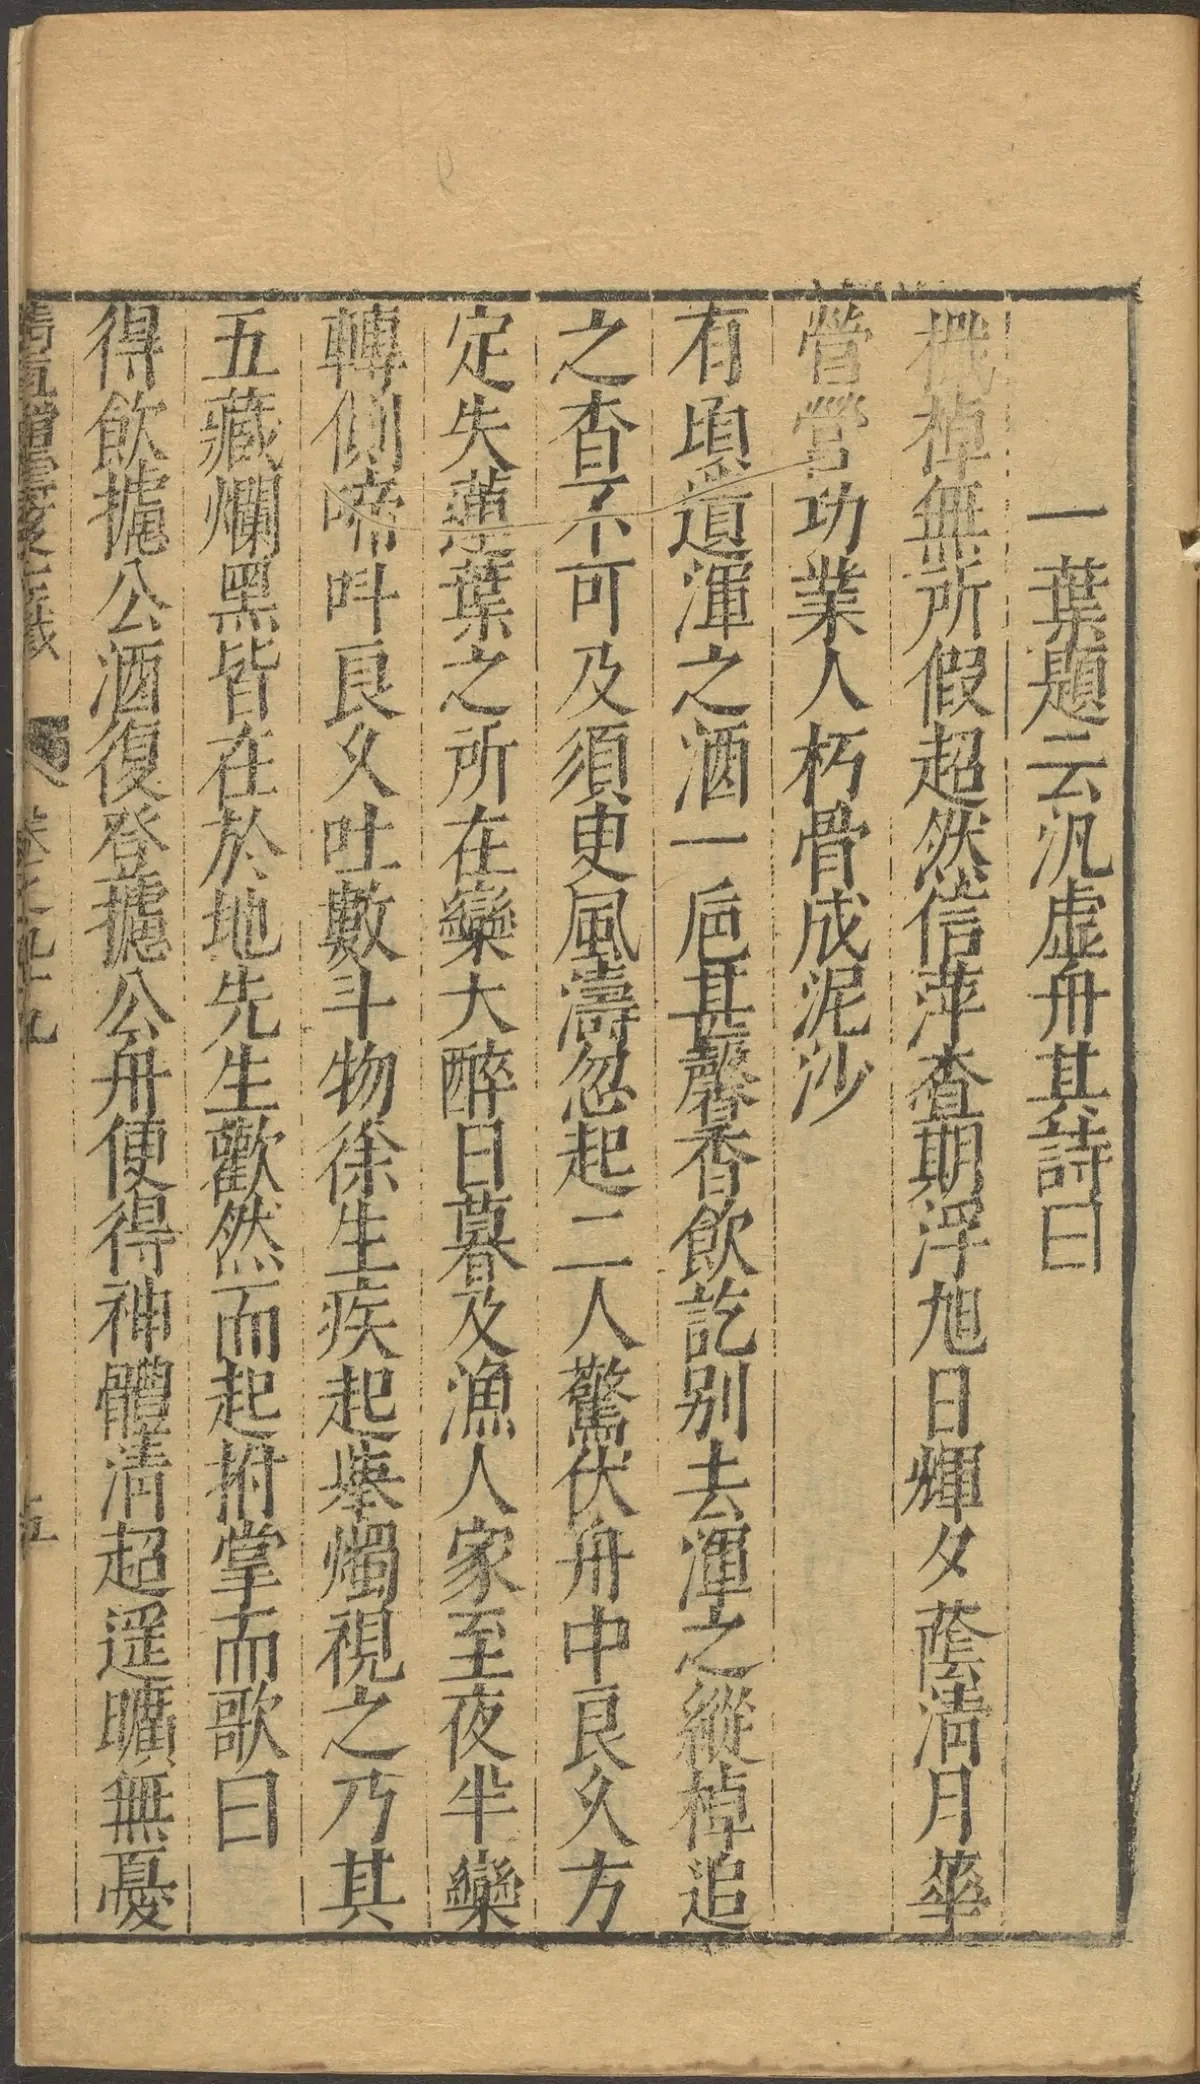 一葉題云汎虛舟其詩曰
機棹無所假超然信萍查期浮旭日輝夕蔭淸月華
營營功業人朽骨成泥沙
有頃道渾之酒一巵甚馨香飲訖別去渾之縱棹追
之杳不可及須叓風濤忽起二人驚伏舟中良久方
定失蓮葉之所在欒大醉日暮及漁人家至夜半欒
轉側啼呌良久吐數斗物徐生疾起舉燭視之乃其
五藏爛黑皆在於地先生歡然而起拊掌而歌曰
得飲攄公酒復登攄公舟便得神體淸超遥曠無憂
雲笈七籤
卷之九十九
五